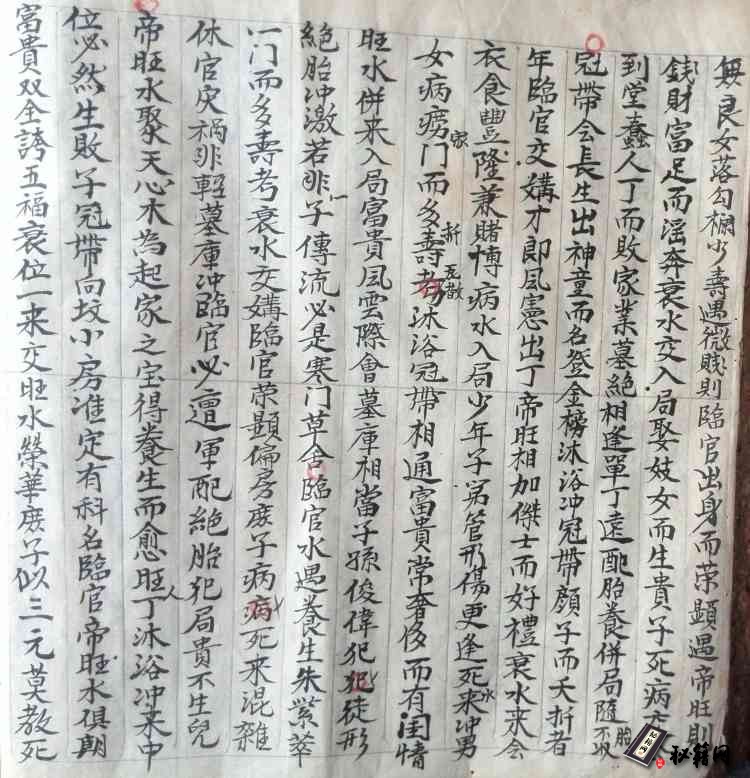 無良女落勾欄少壽遇微賤則臨官出身而荣顕遇帝旺則
錢財富足而滛奔衰水交入局娶妓女而生貴子死病
到堂蠢人丁而敗家業墓絶相逢單丁遠配胎養併局隨胎不
冠帶会長生出神童而名登金榜沐浴冲冠帶顔子而夭折者
年臨官交媾才即風憲出丁帝旺相加傑士而好禮衰水来会
衣食豐隆兼賭博病水入局少年子宮管形傷更逢死来冲男
女病癆门而多壽考沐浴冠帶相通富貴常奢侈而有闺情
旺水併来入局富貴風雲際會墓庫相當子孫俊偉犯犯徒形
絶胎冲激若非子傳流必是寒门草舍臨官水遇養生朱紫萃
一门而多壽考衰水交媾臨官荣顕偏房庶子病病死来混雜
休官灾禍非輕墓庫冲臨官必遭軍配絶胎犯局貴不生兒
帝旺水聚天心木為起家之宝得養生而愈旺人丁沐浴冲来中
位必然生敗子冠帶向坟小房准定有科名臨官帝旺水俱朝
富貴双全誇五福衰位一来交旺水榮華庶子似三元莫教死
秘籍网